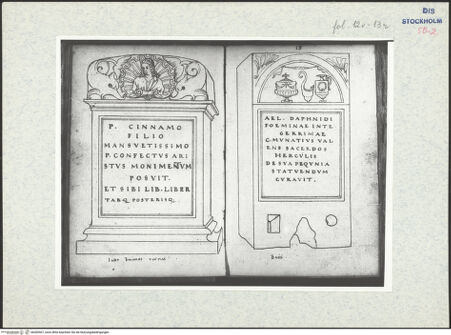 fol. 12v-13r
DIS
STOCKHOLM
P. CINNAMO
FILIO
MANSVETISSIMO
P. CONFECTVS ARI
STVS MONIMENTVM
POSVIT.
ET SIBI LIB. LIBER
TABQ POSTERISQ.
13
AEL. DAPHNIDI
FOEMINAE INTE
GERRIMAE
C. MVNATIVS VAL
ENS SACERDOS
HERCVLIS
DE SVA PEQVNIA
STATVENDVM
CVRAVIT.